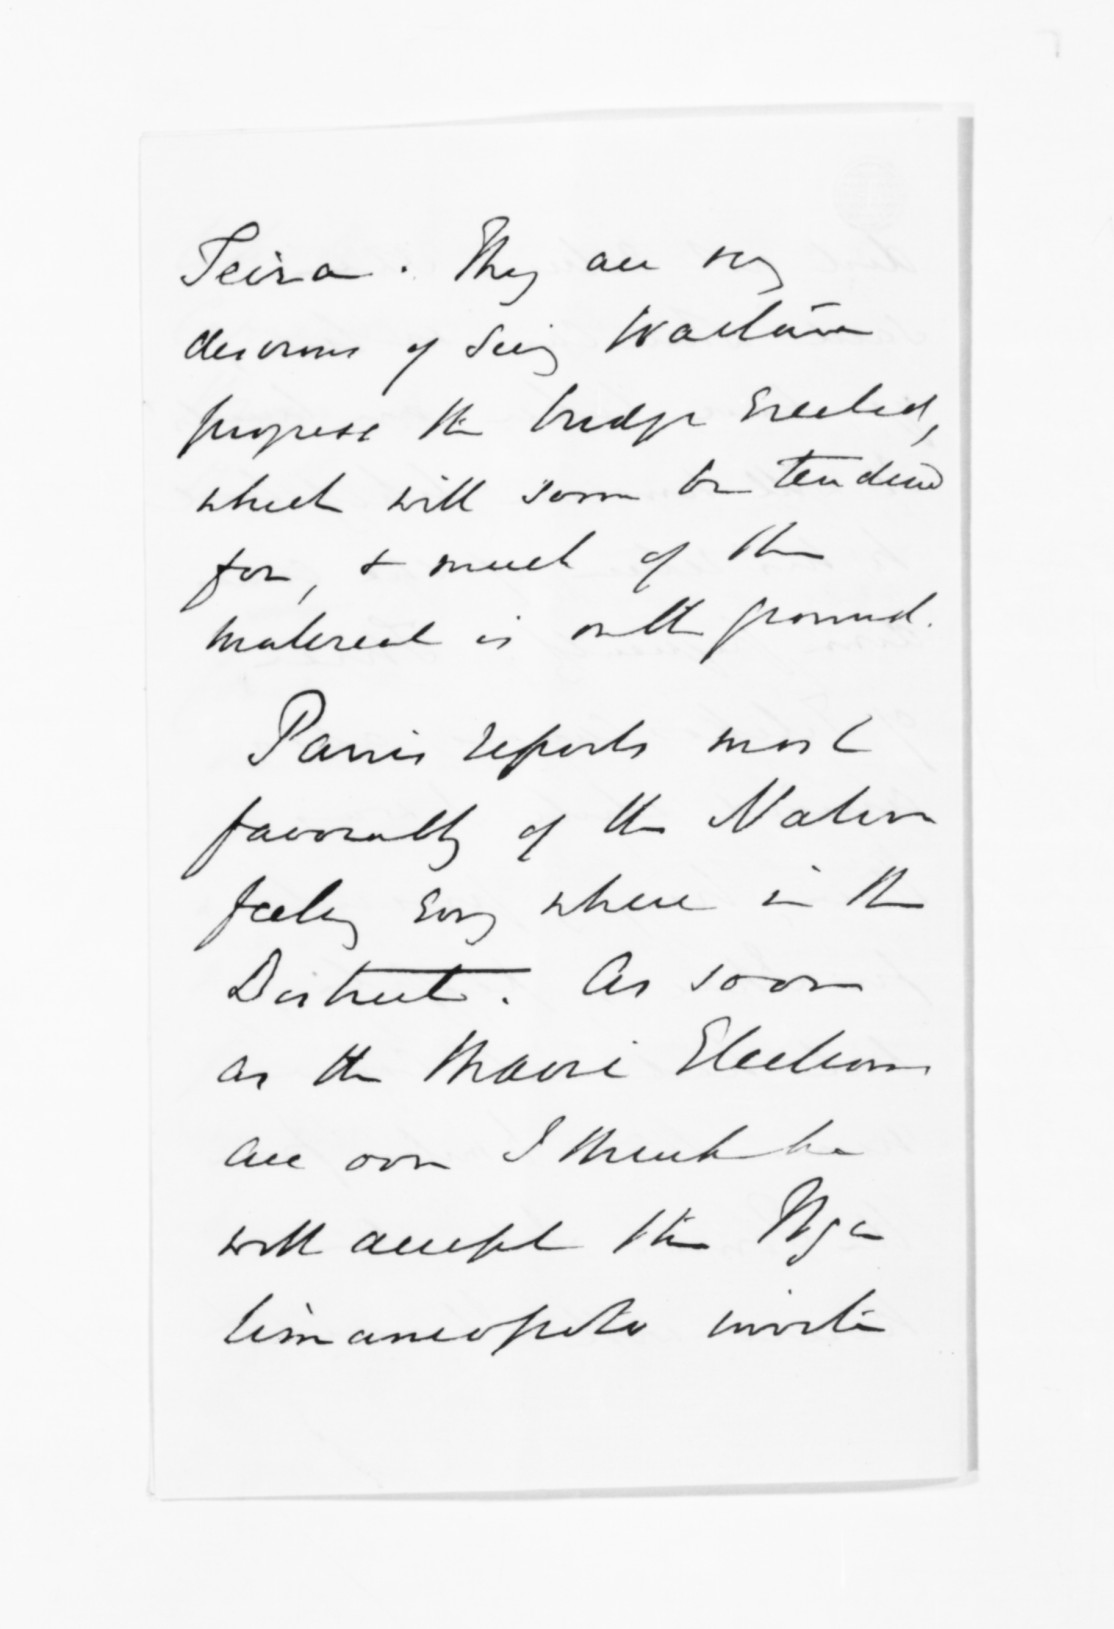 Teira. They are very
desirous of seeing Waitara
progress the bridge erected,
which will soon be tendered
for, & much of the
material is on the ground.
Parris reports most
favorably of the Native
feeling every where in the
District. As soon
as the Maori Elections
are over I think he
will accept the Nga
timaniopoto invita